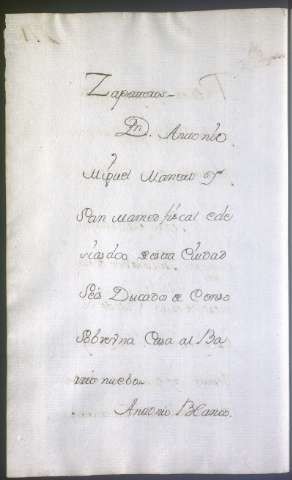 Zapateros =
Dn. D. Antonio
Miguel Manero y
San Mames fiscal ede
esta Ciudad
Seis Ducados de Censo
Sobre vna Casa al Ba
rrio nuebo.
Antonio Blanco.